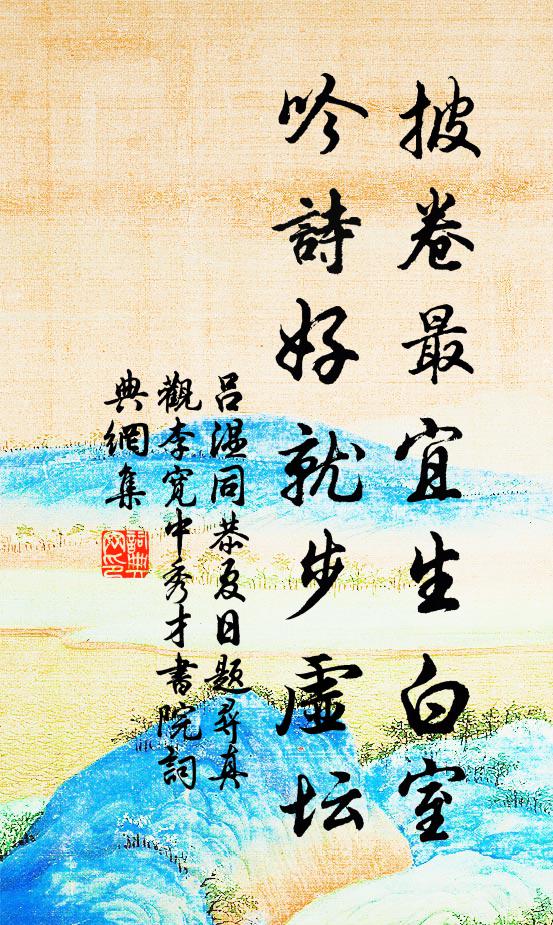 披卷最宜生白室
吟詩好就步虛坛
吕温同恭夏日题尋真
觀李寬中秀才書院詞
典網集
詞典
网印